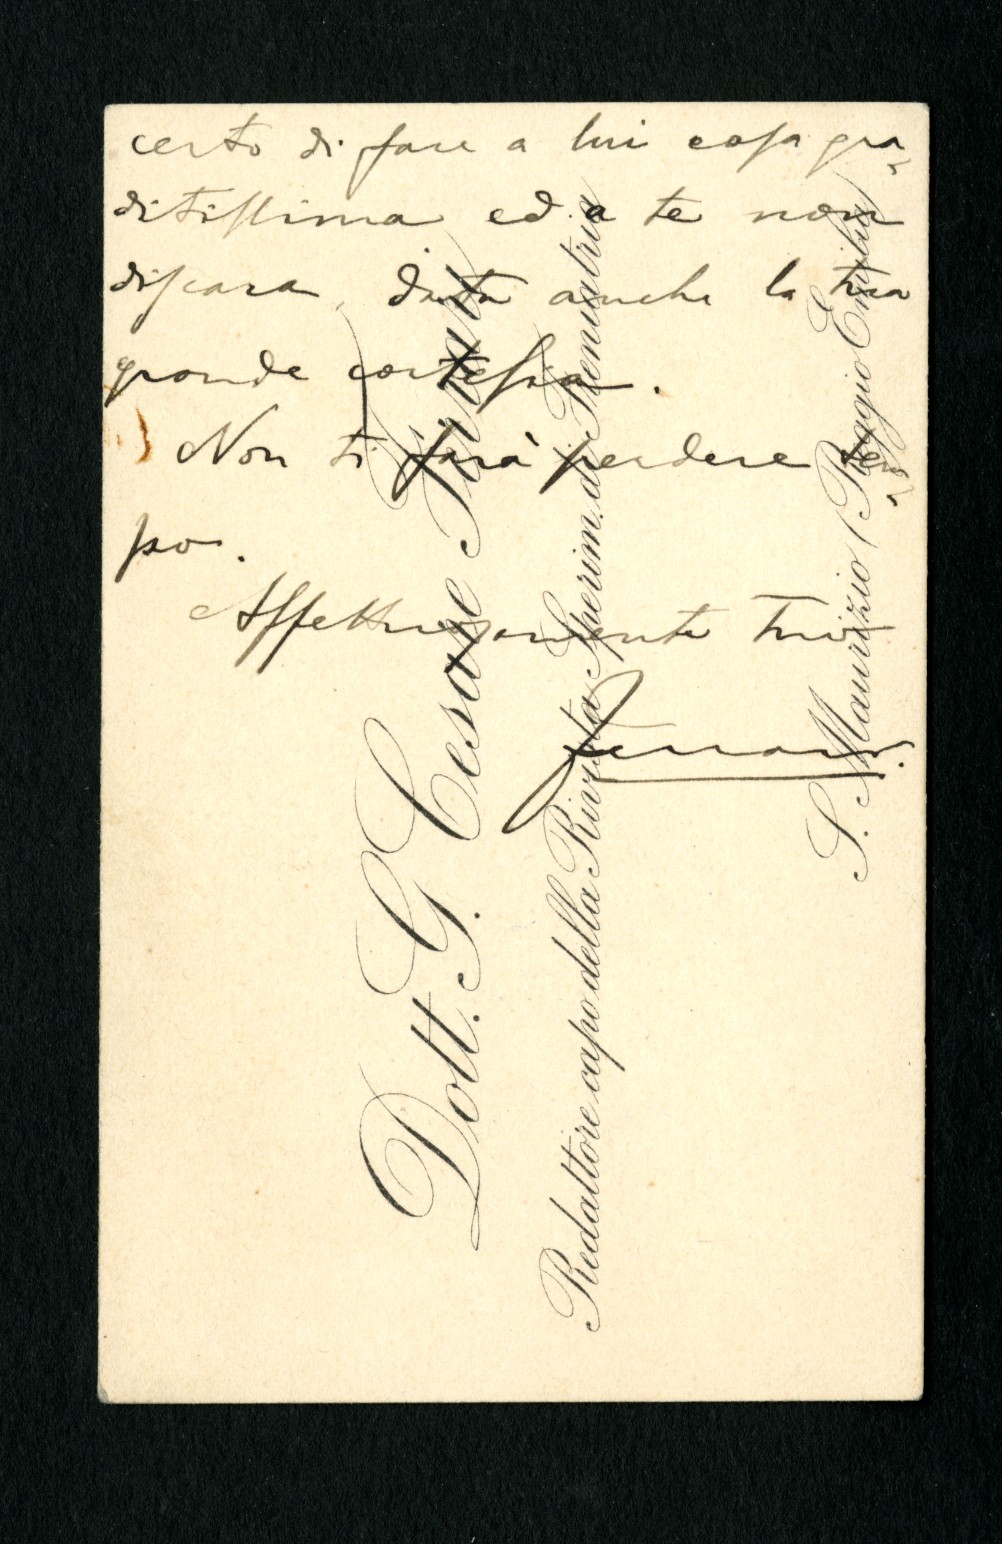 certo di fare a lui cosa gra-
ditissima ed a te non
discara, data anche la tua
grande cortesia.
Non ti farà perdere tem-
po.
Affettuosamente tuo
Ferrari.
Dott. G. Cesare Ferrari
Redattore capo della Rivista Sperim. di Freniatria
S. Maurizio (Reggio Emilia)